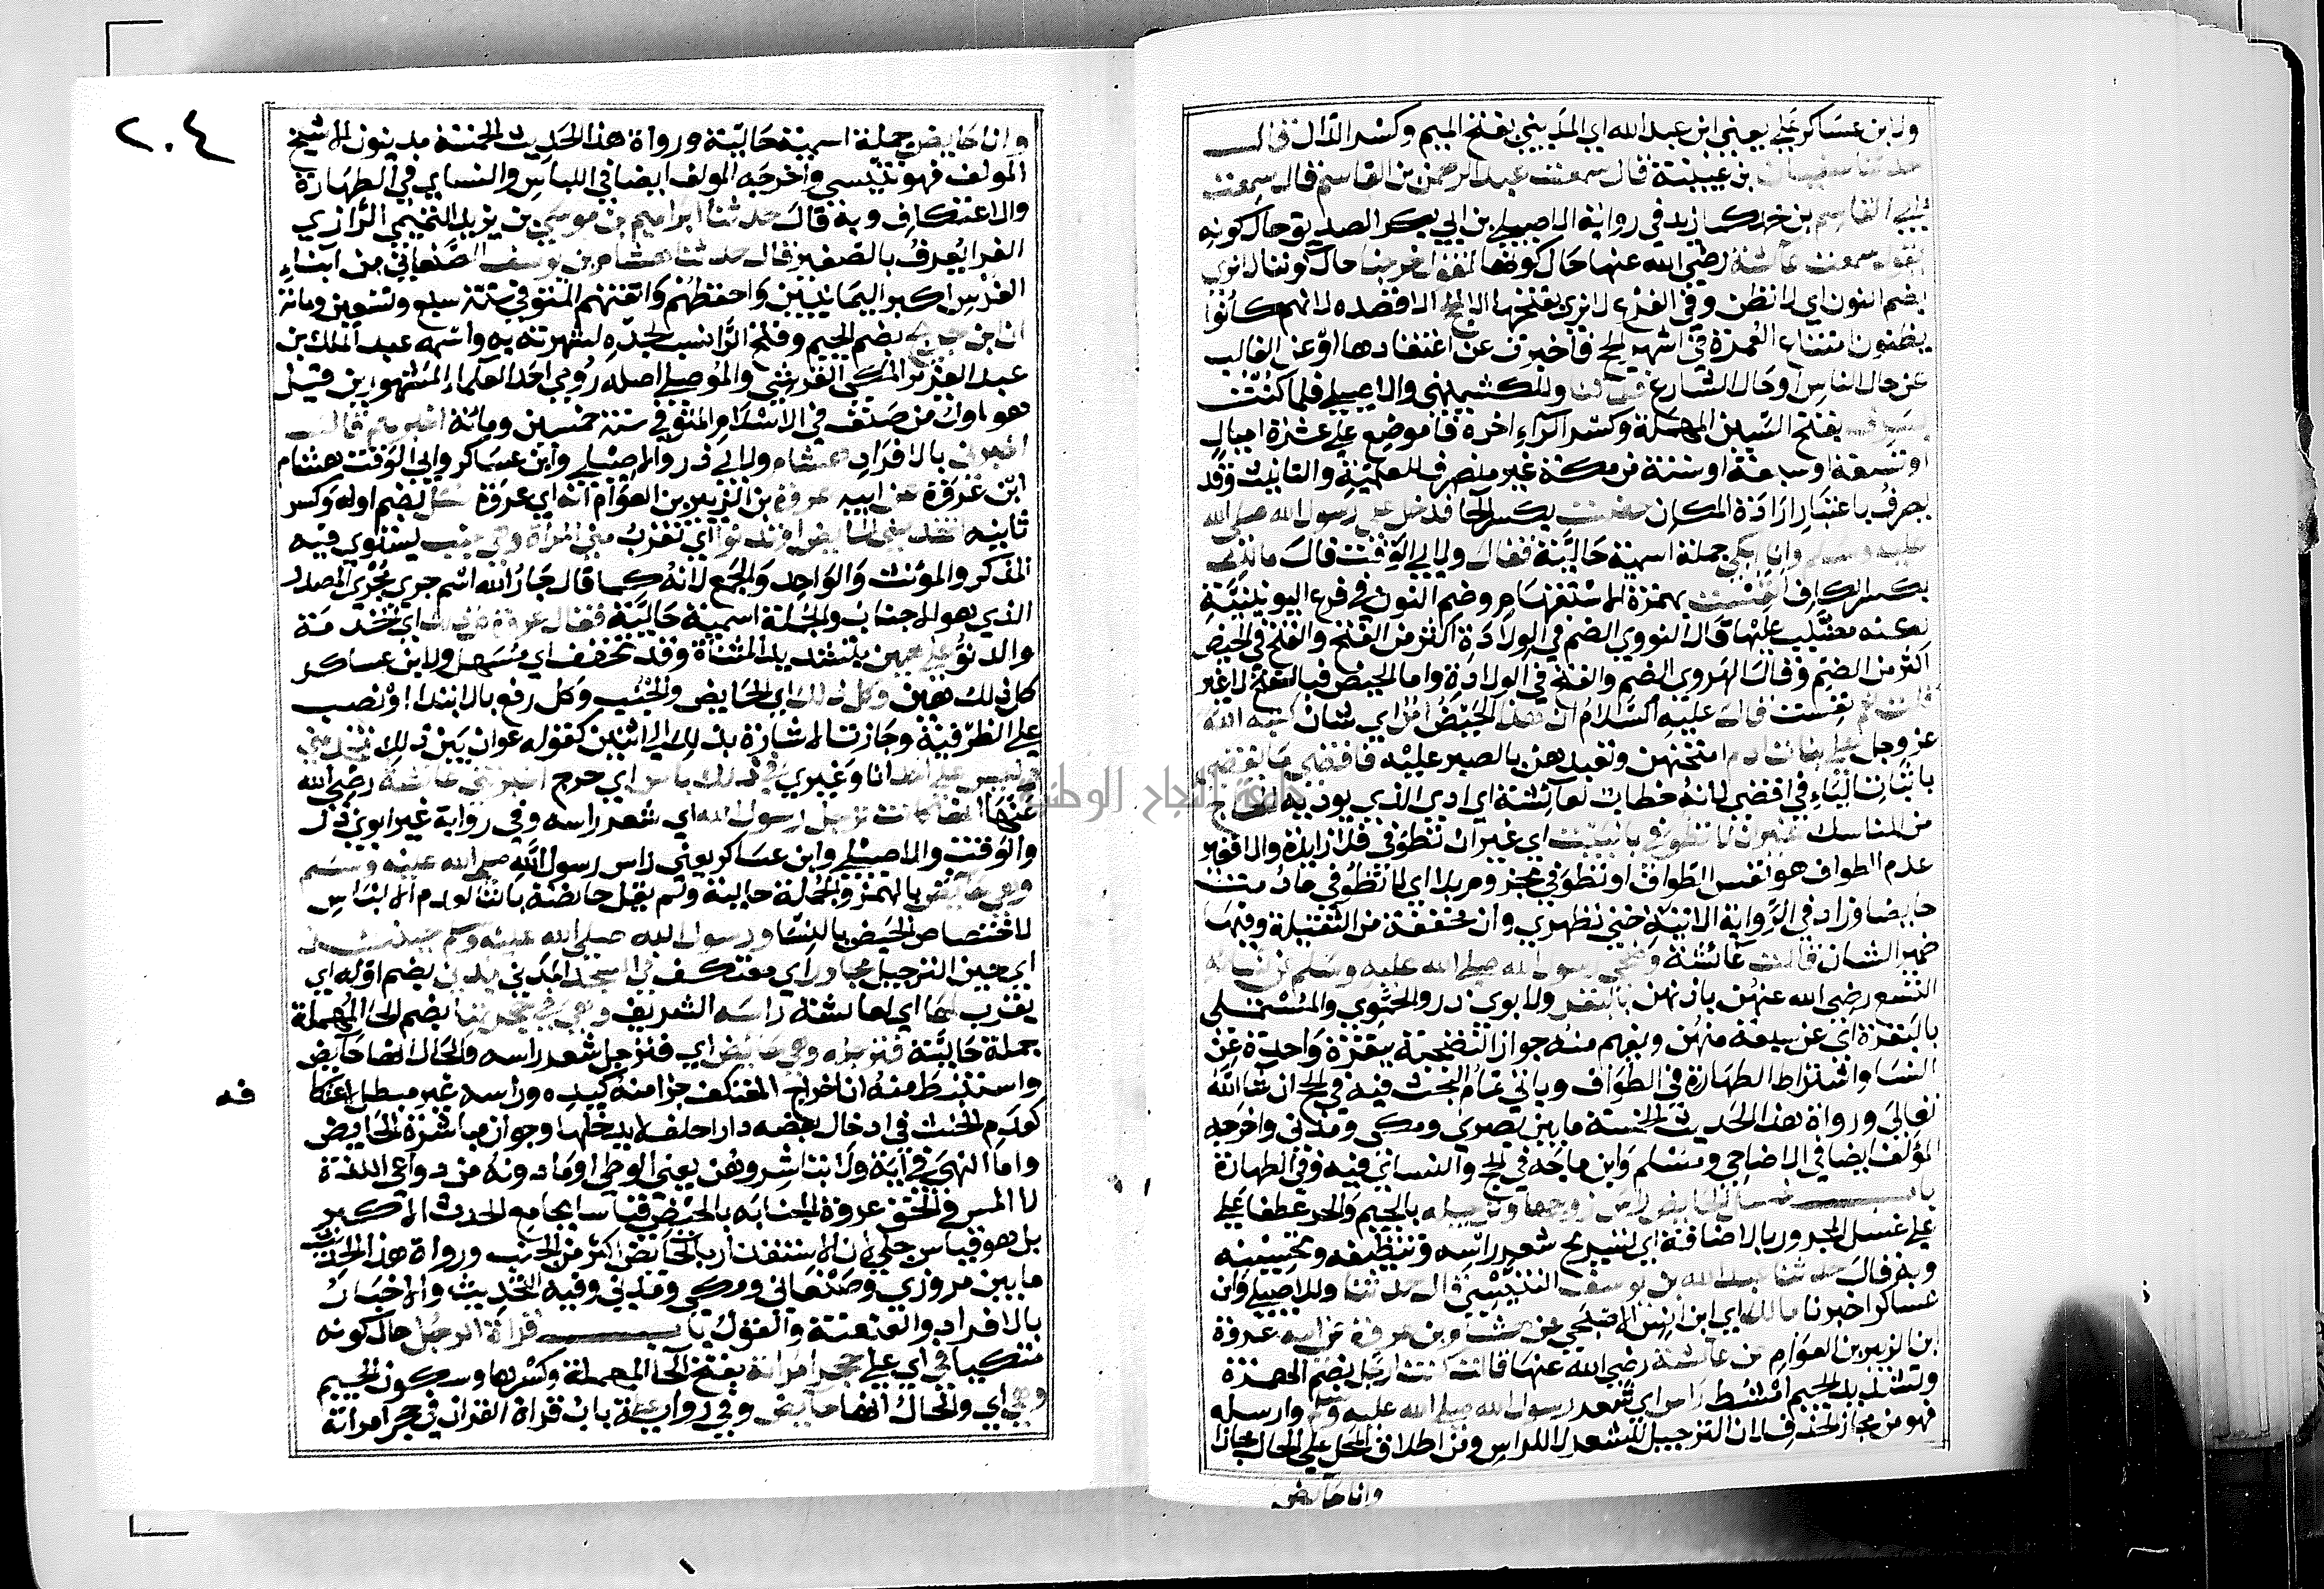 ولابن عساكر علي يعني ابن عبد الله اي المديني بفتح الميم وكسر الدال قال
حدثنا سفيان بن عيينة قال سمعت عبد الرحمن بن القاسم قال سمعت
ابي القاسم بن محمد زيد في رواية الاصيلي بن ابي بكر الصديق حال كونه
يقول سمعت عائشة رضي الله عنها حال كونها تقول خرجنا حال كوننا لانرى
بضم النون اي لا نظن وفي الفرع لانرى بفتحها الا الحج الا قصده لانهم كانوا
يظنون امتناع العمرة في اشهر الحج فاخبرت عن اعتقادها او عن الغالب
عن حال الناس او حال الشارع فلما كنا وللكشميهني والاصيلي فلما كنت
بسرف بفتح السين المهملة وكسر الراء اخره فا موضع على عشرة اميال
او تسعة او سبعة او ستة من مكة غير منصرف للعلمية والتانيث وقد
يصرف باعتبار ارادة المكان حضت بكسر الحا فدخل علي رسول الله صلى الله
عليه وسلم وانا ابكي جملة اسمية حالية فقال ولابي الوقت قال مالك
بكسر الكاف انفست بهمزة الاستفهام وضم النون في فرع اليونينية
لكنه مضبب عليها قال النووي الضم في الولادة اكثر من الفتح والفتح في الحيض
اكثر من الضم وقال الهروي الضم والفتح في الولادة واما الحيض فبالفتح لاغير
قلت نعم نفست قال عليه السلام ان هذا الحيض امر اي شان كتبه الله
عز وجل على بنات ادم امتحنهن وتعبدهن بالصبر عليه فاقضي ما يقضي
باثبات الياء في اقضي لانه خطاب لعائشة اي ادي الذي يوديه الحاج
من المناسك غير ان لا تطوفي بالبيت اي غير ان تطوفي فلا زايدة والا فغير
عدم الطواف هو نفس الطواف او تطوفي مجزوم بلا اي لا تطوفي مادمت
حايضا وزاد في الرواية الاتية حتى تطهري وان مخففة من الثقيلة وفيها
ضمير الشان قالت عائشة وضحى رسول الله صلى الله عليه وسلم عن نسائه
التسع رضي الله عنهن باذنهن بالبقر ولابوي ذر والحموي والمستملي
بالبقرة اي عن سبعة منهن ويفهم منه جواز التضحية ببقرة واحدة عن
النسا واشتراط الطهارة في الطواف وياتي تمام البحث فيه في الحج ان شا الله
تعالى ورواة هذا الحديث الخمسة ما بين بصري ومكي ومدني واخرجه
المؤلف ايضا في الاضاحي ومسلم وابن ماجه في الحج والنسائي فيه وفي الطهارة
باب غسل الحايض راس زوجها وترجيله بالجيم والجر عطفا على
على غسل المجرور بالاضافة اي تسريح شعر راسه وتنظيفه وتحسينه
وبه قال حدثنا عبد الله بن يوسف التنيسي قال حدثنا وللاصيلي وابن
عساكر اخبرنا مالك اي ابن انس الاصبحي عن هشام بن عروة عن ابيه عروة
ابن الزبير بن العوام عن عائشة رضي الله عنها قالت كنت ارجل بضم الهمزة
وتشديد الجيم امشط راس اي شعر رسول الله صلى الله عليه وسلم وارسله
فهو من مجاز الحذف لان الترجيل للشعر لا للراس ومن اطلاق المحل على الحال مجازا
وانا حايض
٢٠٤
وانا حايض جملة اسمية حالية ورواة هذا الحديث الخمسة مدنيون الا شيخ
المولف فهو تنيسي واخرجه المولف ايضا في اللباس والنساي في الطهارة
والاعتكاف وبه قال حدثنا ابراهيم بن موسى بن يزيد التميمي الرازي
الفرا يعرف بالصغير قال حدثنا هشام بن يوسف الصنعاني من ابناء
الفرس اكبر اليمانيين واحفظهم واتقنهم المتوفى سنة سبع وتسعين ومائة
ان ابن جريج بضم الجيم وفتح الرا نسب لجده لشهرته به واسمه عبد الملك بن
عبد العزيز المكي القرشي والموصلي اصله رومي احد العلماء المشهورين قيل
هو اول من صنف في الاسلام المتوفى سنة خمسين ومائة اخبرهم قال
اخبرني بالافراد هشام ولابي ذر والاصيلي وابن عساكر وابي الوقت هشام
ابن عروة عن ابيه عروة بن الزبير بن العوام انه اي عروة سئل بضم اوله وكسر
ثانيه اتخدمني الحايض او تدنو اي تقرب مني المراة وهي جنب يستوي فيه
المذكر والمونث والواحد والجمع لانه كما قال جار الله اسم جرى مجرى المصدر
الذي هو الاجناب والجملة اسمية حالية فقال عروة كل ذلك اي الخدمة
والدنو علي هين بتشديد المثناة وقد تخفف اي سهل ولابن عساكر
كل ذلك هين وكل ذلك اي الحايض والجنب وكل رفع بالابتدا او نصب
على الظرفية وجازت الاشارة بذلك الى اثنين كقوله عوان بين ذلك تخدمني
وليس على احد انا وغيري في ذلك باس اي حرج اخبرتني عائشة رضي الله
عنها انها كانت ترجل رسول الله اي شعر راسه وفي رواية غير ابوي ذر
والوقت والاصيلي وابن عساكر يعني راس رسول الله صلى الله عليه وسلم
وهي حايض بالهمز والجملة حالية ولم يقل حائضة بالتا لعدم الالتباس
لاختصاص الحيض بالنسا ورسول الله صلى الله عليه وسلم حينئذ
اي حين الترجيل مجاور اي معتكف في المسجد المدني يدني بضم اوله اي
يقرب لها اي لعائشة راسه الشريف وهي في حجرتها بضم الحا المهملة
جملة حالية فترجله وهي حايض اي فترجل شعر راسه والحال انها حايض
واستنبط منه ان اخراج المعتكف جزا منه كيده وراسه غير مبطل لاعتكا
فه
كعدم الحنث في ادخال بعضه دارا حلف لا يدخلها وجواز مباشرة الحايض
واما النهي في اية ولا تباشروهن يعني الوطي او ما دونه من دواعي اللذة
لا المس والحق عروة الجنابة بالحيض قياسا بجامع الحدث الاكبر
بل هو قياس جلي لان الاستقذار بالحائض اكثر من الجنب ورواة هذا الحديث
ما بين مروزي وصنعاني ومكي ومدني وفيه التحديث والاخبار
بالافراد والعنعنة والقول باب قراة الرجل حال كونه
متكيا في اي على حجر امراته بفتح الحا المهملة وكسرها وسكون الجيم
وهي اي والحال انها حايض وفي رواية باب قراة القران في حجر امراته